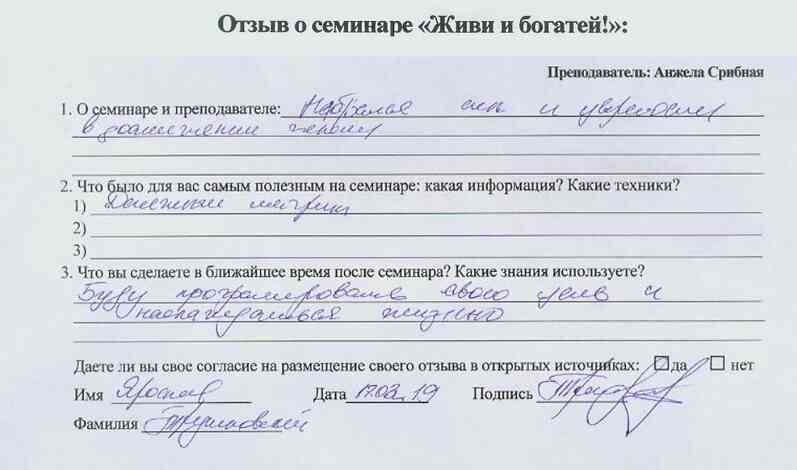 Отзыв о семинаре «Живи и богатей!»:
Преподаватель: Анжела Срибная
1. О семинаре и преподавателе: Набрался сил и уверенности
в достижении
2. Что было для вас самым полезным на семинаре: какая информация? Какие техники?
1) Денежный
2)
3)
3. Что вы сделаете в ближайшее время после семинара? Какие знания используете?
Буду программировать свою цель и
наслаждаться жизнью
Даете ли вы свое согласие на размещение своего отзыва в открытых источниках: ☑ да ☐ нет
Имя Дата 17.02.19 Подпись
Фамилия